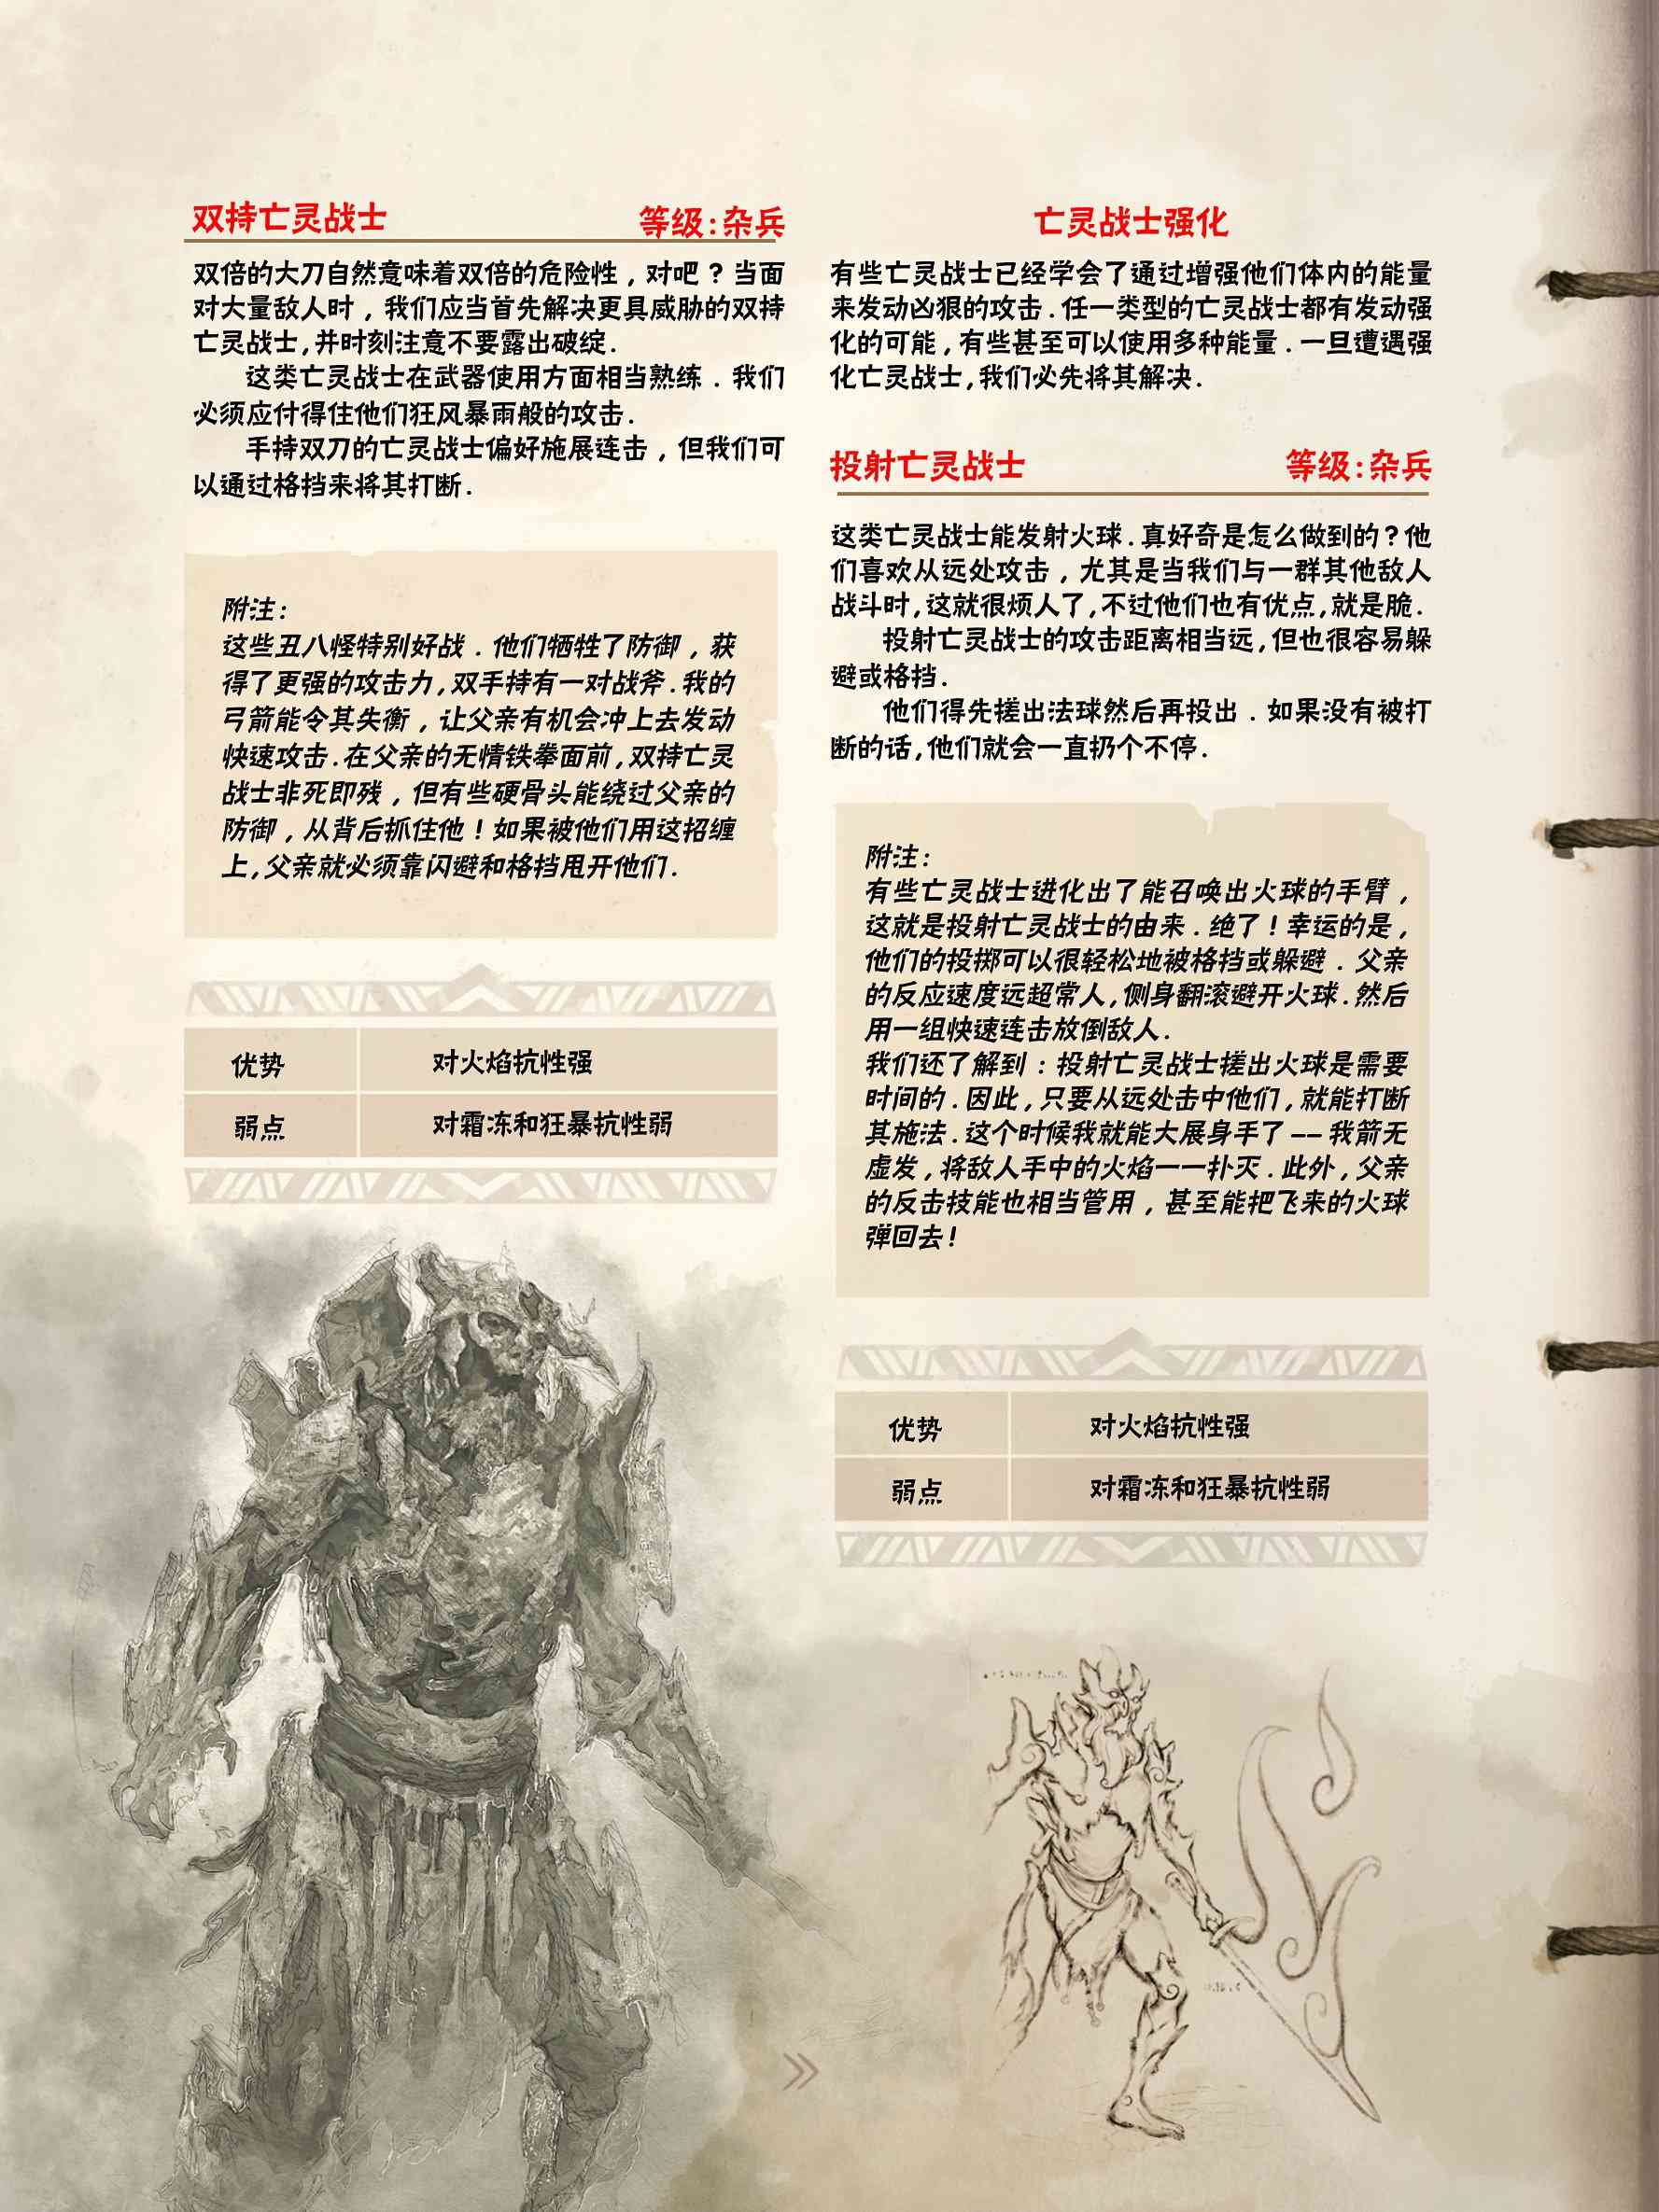 双持亡灵战士 等级:杂兵
双倍的大刀自然意味着双倍的危险性，对吧？当面
对大量敌人时，我们应当首先解决更具威胁的双持
亡灵战士,并时刻注意不要露出破绽.
这类亡灵战士在武器使用方面相当熟练．我们
必须应付得住他们狂风暴雨般的攻击.
手持双刀的亡灵战士偏好施展连击，但我们可
以通过格挡来将其打断.
附注:
这些丑八怪特别好战．他们牺牲了防御，获
得了更强的攻击力,双手持有一对战斧.我的
弓箭能令其失衡，让父亲有机会冲上去发动
快速攻击.在父亲的无情铁拳面前,双持亡灵
战士非死即残，但有些硬骨头能绕过父亲的
防御，从背后抓住他！如果被他们用这招缠
上,父亲就必须靠闪避和格挡甩开他们.
优势 对火焰抗性强
弱点 对霜冻和狂暴抗性弱
亡灵战士强化
有些亡灵战士已经学会了通过增强他们体内的能量
来发动凶狠的攻击.任一类型的亡灵战士都有发动强
化的可能,有些甚至可以使用多种能量.一旦遭遇强
化亡灵战士,我们必先将其解决.
投射亡灵战士 等级:杂兵
这类亡灵战士能发射火球.真好奇是怎么做到的?他
们喜欢从远处攻击，尤其是当我们与一群其他敌人
战斗时,这就很烦人了,不过他们也有优点,就是脆.
投射亡灵战士的攻击距离相当远,但也很容易躲
避或格挡.
他们得先搓出法球然后再投出．如果没有被打
断的话,他们就会一直扔个不停.
附注:
有些亡灵战士进化出了能召唤出火球的手臂，
这就是投射亡灵战士的由来.绝了!幸运的是,
他们的投掷可以很轻松地被格挡或躲避．父亲
的反应速度远超常人,侧身翻滚避开火球.然后
用一组快速连击放倒敌人.
我们还了解到：投射亡灵战士搓出火球是需要
时间的.因此,只要从远处击中他们,就能打断
其施法.这个时候我就能大展身手了--我箭无
虚发,将敌人手中的火焰一一扑灭.此外,父亲
的反击技能也相当管用，甚至能把飞来的火球
弹回去!
优势 对火焰抗性强
弱点 对霜冻和狂暴抗性弱